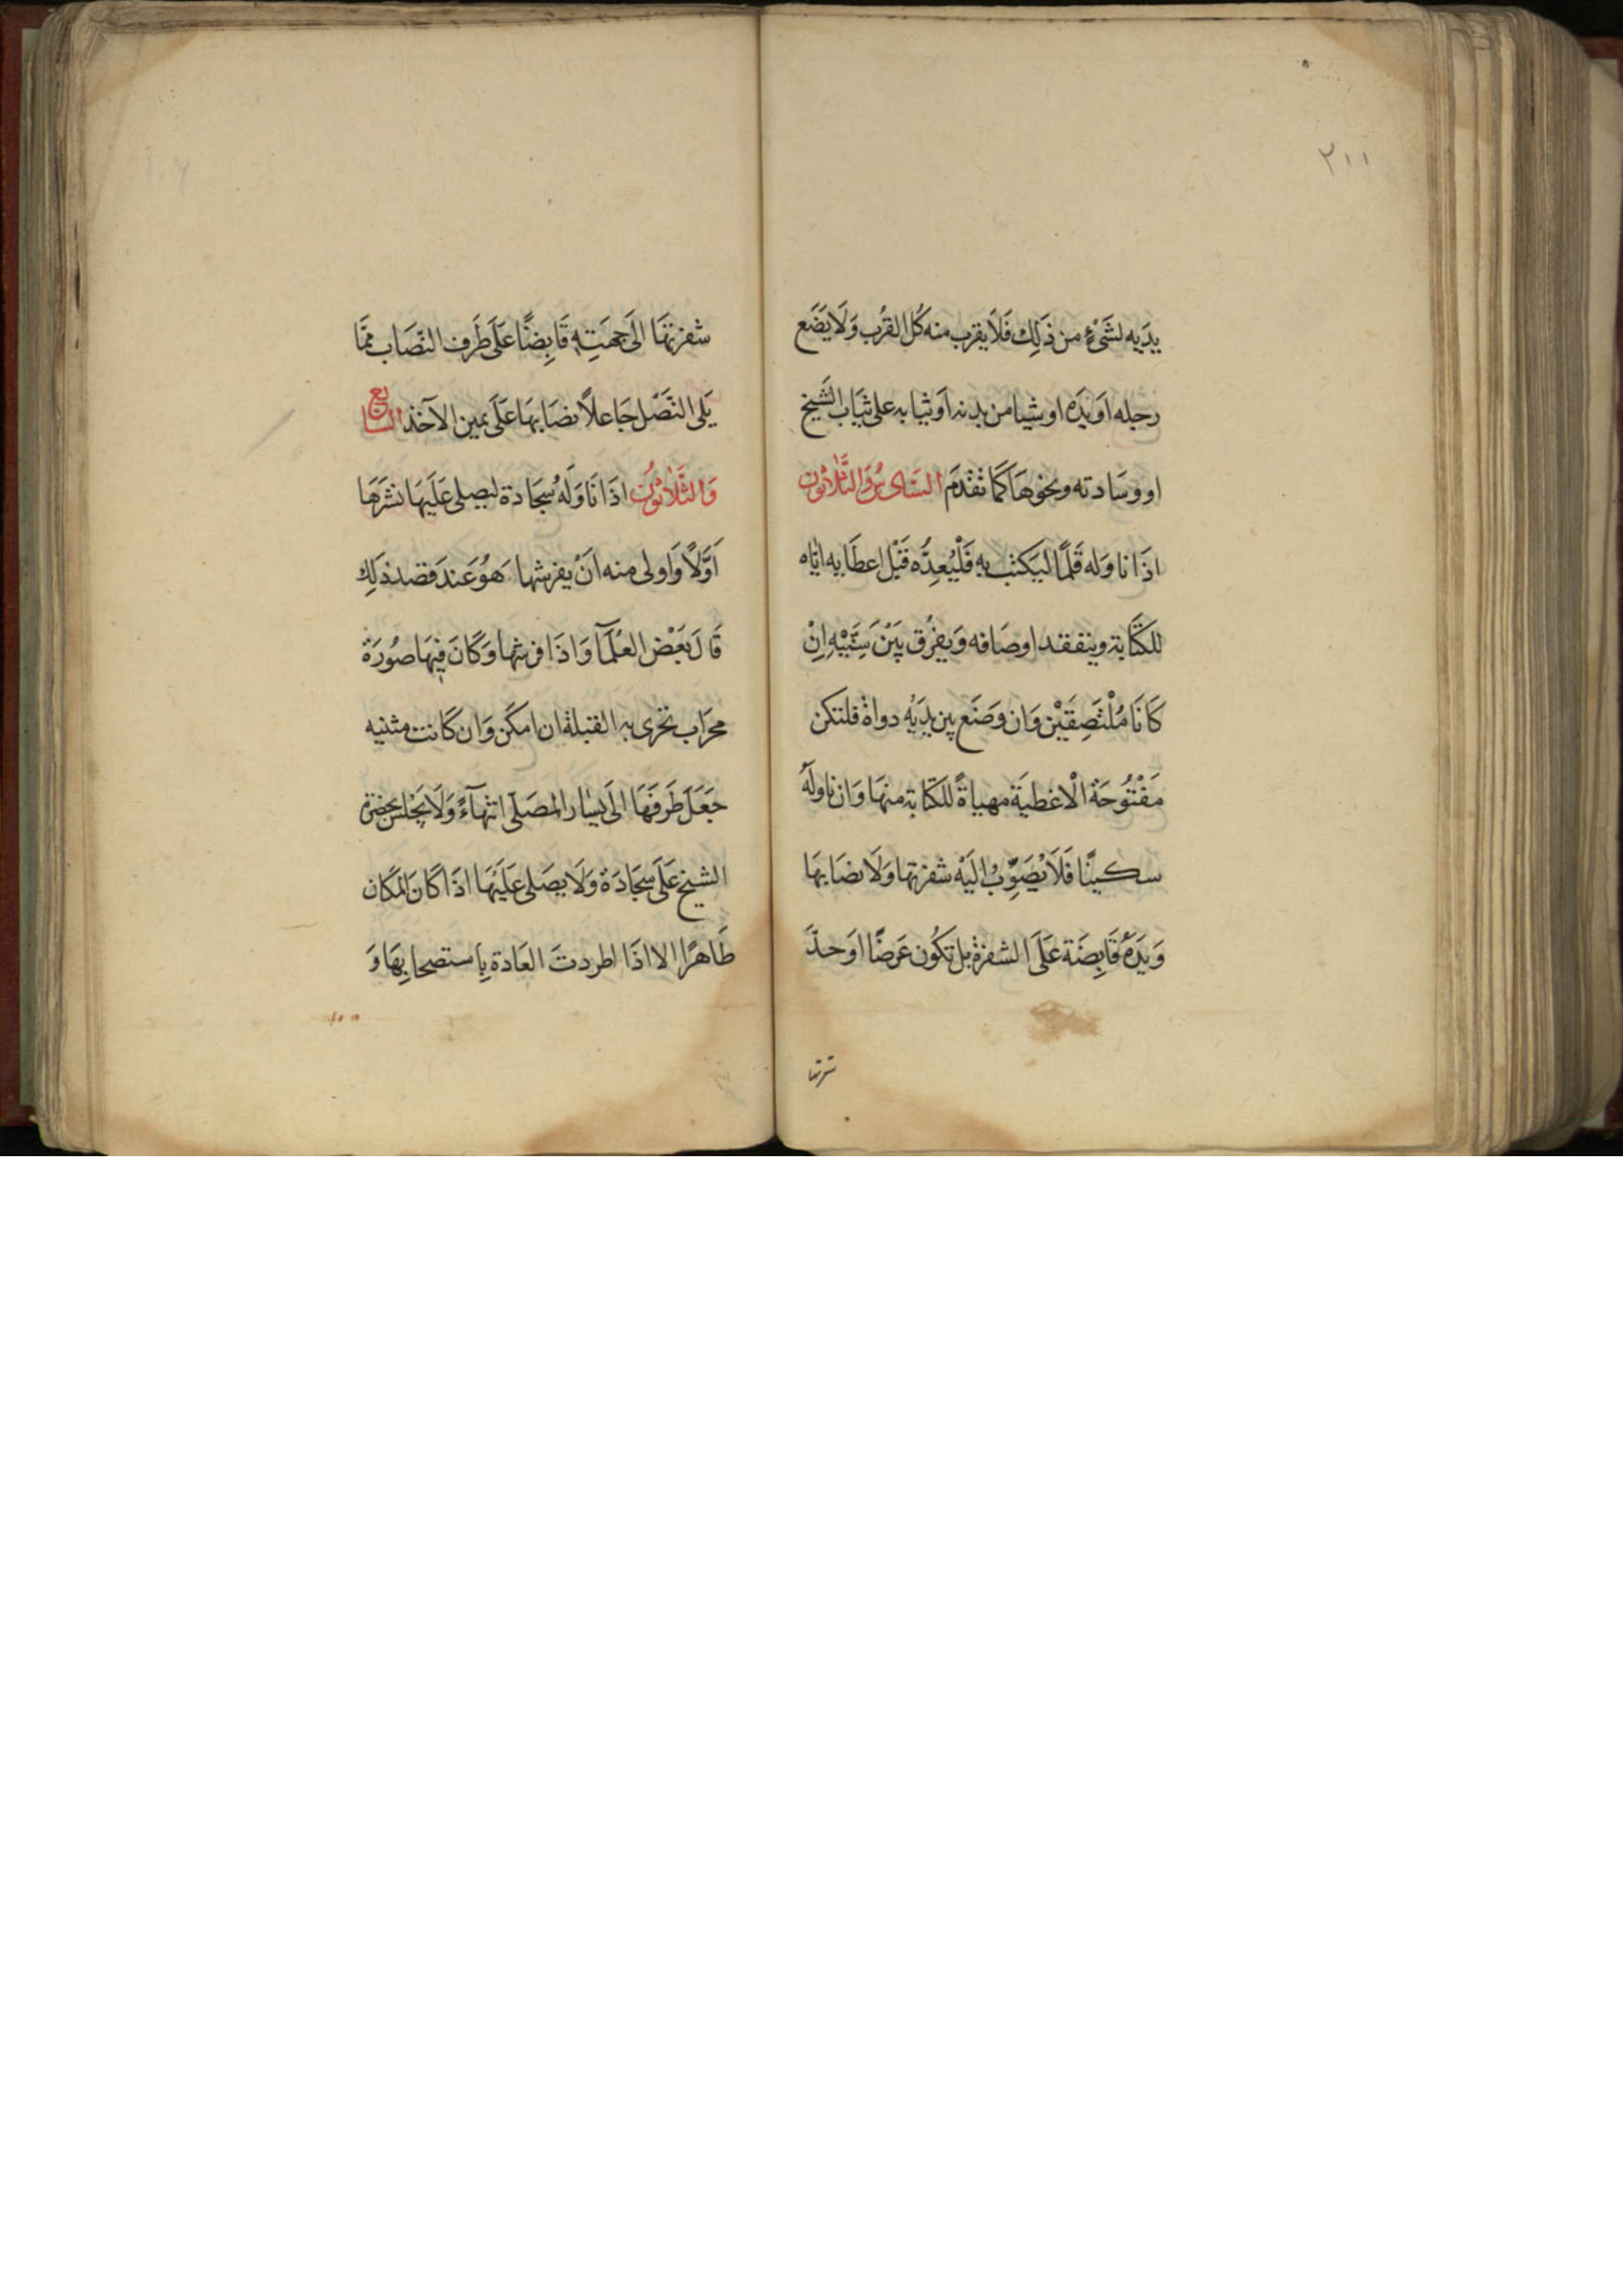 ٢١١
يدَيه لشَىْءٍ من ذَلِك فَلَا يقرب منه كُل القُرب وَلَا يَضَع
رجله اَو يَدَه او شيا من بدنه اَو ثيابه على ثيَاب الشَيخ
او وسَادته ونحوهَا كَمَا تقدَم السَادِسُ وَالثَّلَاثون
اذَا ناوَله قَلَمًا ليَكتب بِهِ فَلْيُعِدَّه قَبْل اعطَايه ايَّاه
للكتَابة ويتفقد اوصَافه وَيفرُق بَيْن سِنَّيْهِ اِنْ
كَانَا مُلْتَصِقَيْن وَان وَضَع بين يدَيْه دواة فلتكن
مَفْتُوحَة الْاغطيَة مهياةً للكتَابة منهَا وَان ناولَه
سكينًا فَلَا يُصَوِّبْ اليَه شفرتها وَلَا نصَابها
وَيَدَهُ قَابِضَة عَلَى الشفرة بل تكُون عَرضًا اوَحدَّ
شفرتهَا
شفرتهَا الَى جهَتِهِ قَابِضًا عَلَى طَرَف النّصَاب ممَّا
يَلى النَّصْل جَاعلاً نصَابهَا عَلَى يمين الآخذ السَّابع
وَالثَّلَاثُون اذَا نَاوَلَهُ سجَادة ليصلى عَلَيهَا نشَرَهَا
اَوَّلًا وَاولى منه انْ يفرشها هُوَ عَندَ قصد ذَلِك
قَالَ بَعْض العُلَمَآ وَاذَا فرشها وَكَانَ فِيهَا صُورَة
محرَاب تحرى به القبلة ان امكَن وَان كَانت مثنيه
جَعَل طَرفَهَا الَى يسَار المصَلى انتهآءً وَلَا يَجْلس بحضرة
الشيخ عَلَى سجَادَة وَلَا يصَلى عَلَيْهَا اذَا كَانَ المَكَان
طَاهرًا الا اذَا اطردتَ العَادة بِاستصحابِهَا وَ